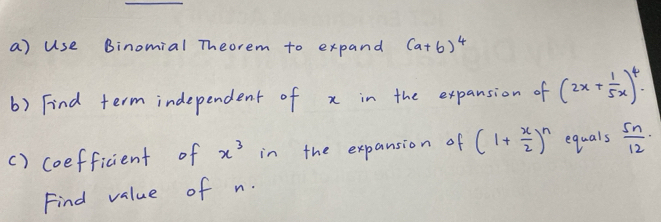 a) Use Binomial Theorem to expand (a+b)⁴
b) Find term independent of x in the expansion of (2x + 1/5x)⁴.
c) Coefficient of x³ in the expansion of (1 + x/2)ⁿ equals 5n/12.
Find value of n.